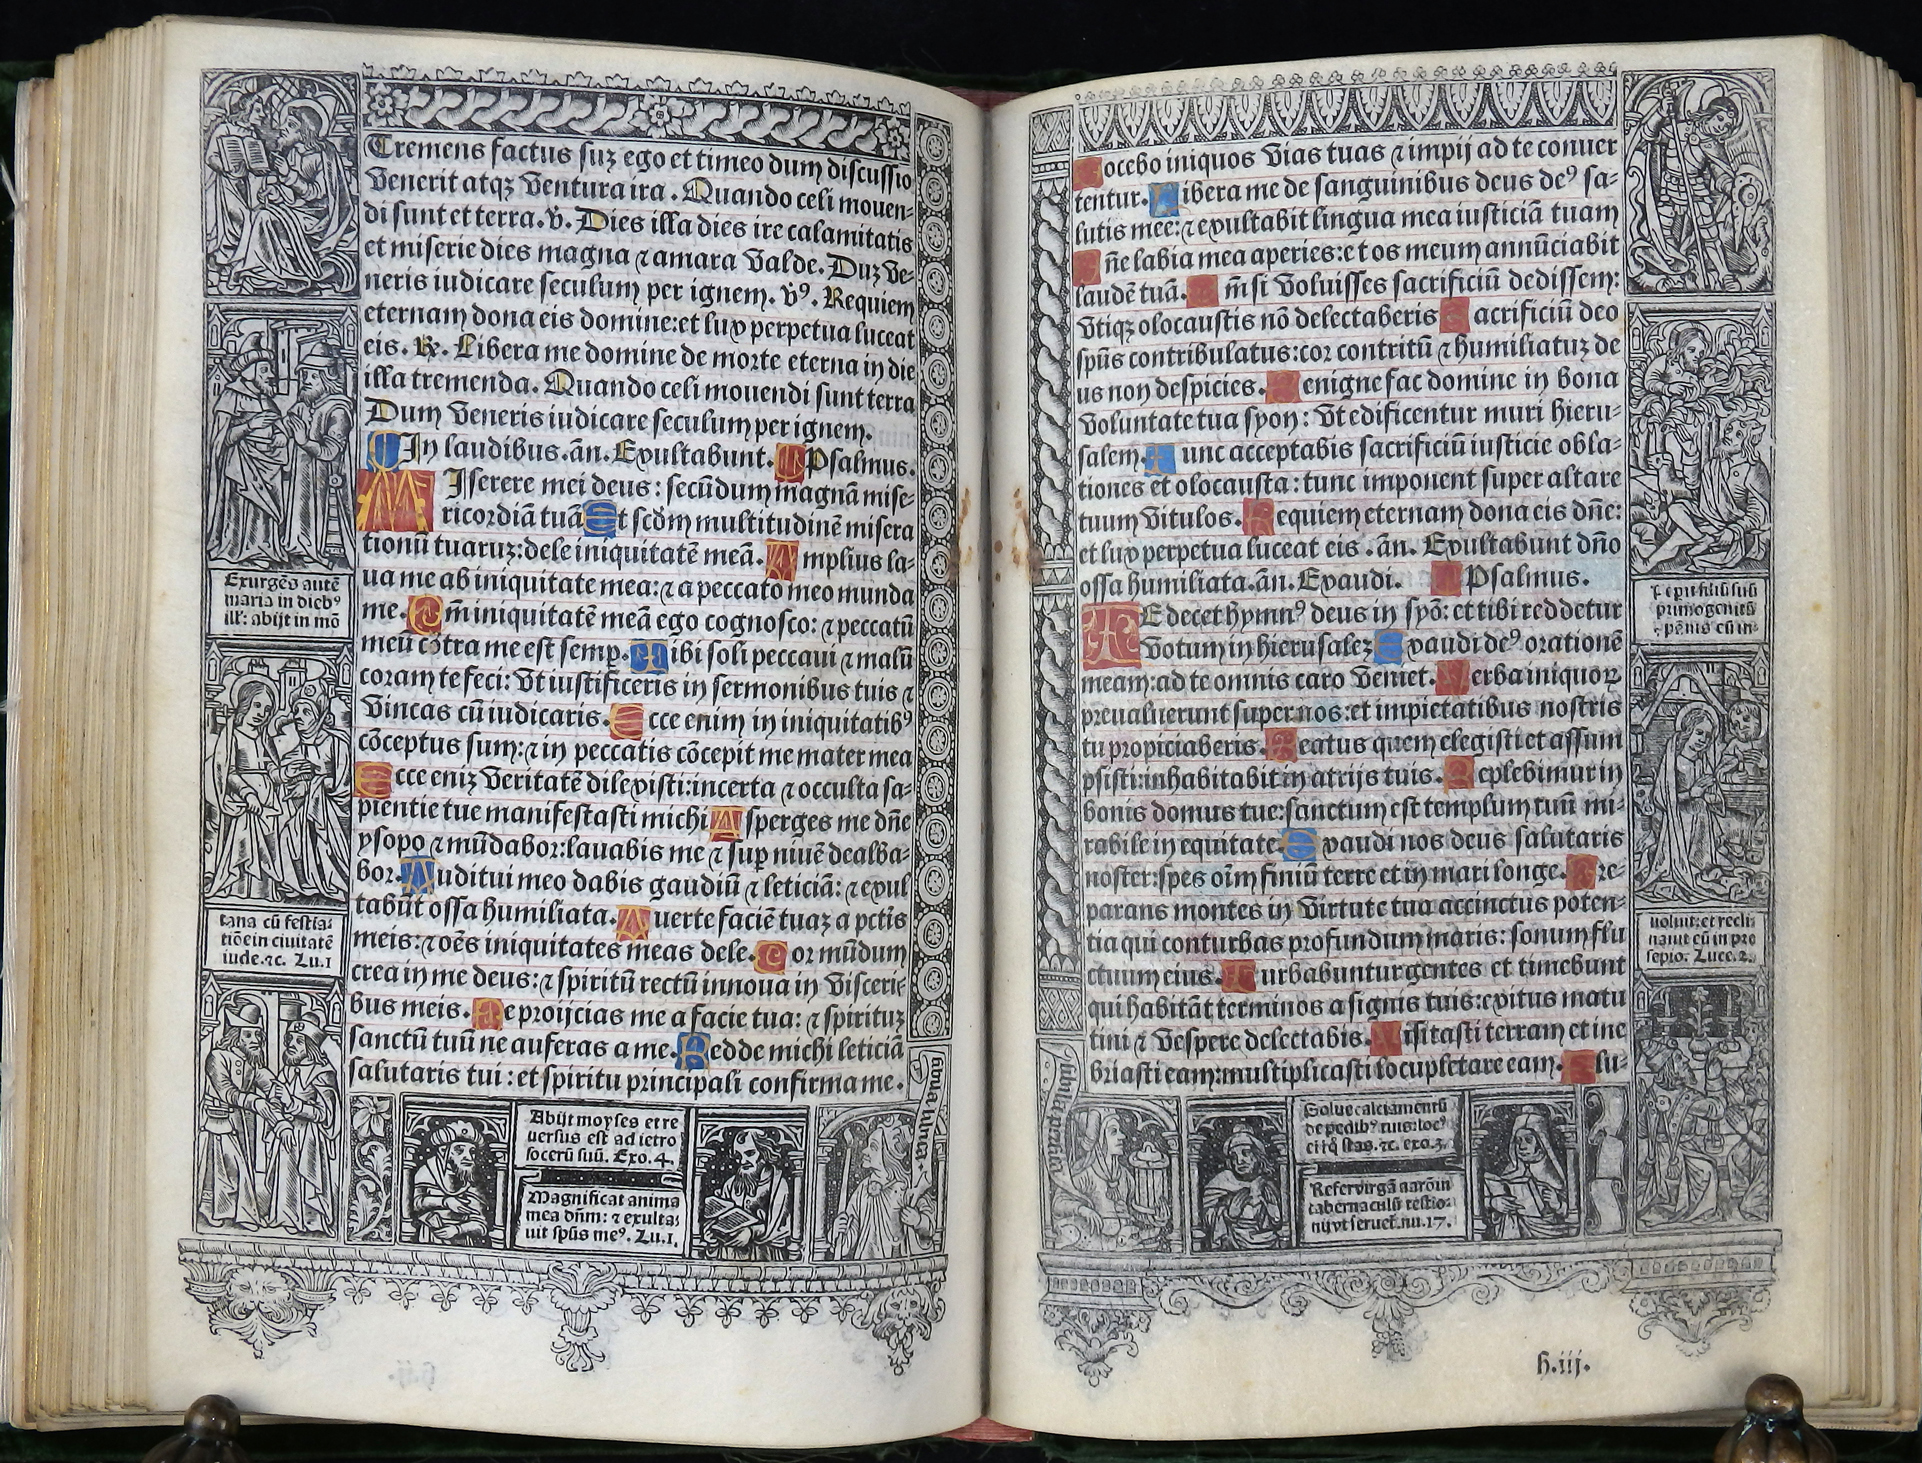 Tremens factus suꝫ ego et timeo dum discussio
venerit atqꝫ ventura ira. Quando celi mouen⸗
di sunt et terra. v̄. Dies illa dies ire calamitatis
et miserie dies magna ⁊ amara valde. Duꝫ ve⸗
neris iudicare seculum per ignem. v̄ꝰ. Requiem
eternam dona eis domine: et lux perpetua luceat
eis. ℟. Libera me domine de morte eterna in die
illa tremenda. Quando celi mouendi sunt terra
Dum veneris iudicare seculum per ignem.
In laudibus. añ. Exultabunt. Psalmus.
MIserere mei deus: secūdum magnā mise⸗
ricordiā tuā Et scḋm multitudinē misera
tionū tuaruꝫ: dele iniquitatē meā. Amplius la⸗
ua me ab iniquitate mea: ⁊ a peccato meo munda
me. Qm̄ iniquitatē meā ego cognosco: ⁊ peccatū
meū cōtra me est semꝑ. Tibi soli peccaui ⁊ malū
coram te feci: vt iustificeris in sermonibus tuis ⁊
vincas cū iudicaris. Ecce enim in iniquitatibꝰ
cōceptus sum: ⁊ in peccatis cōcepit me mater mea
Ecce eniꝫ veritatē dilexisti: incerta ⁊ occulta sa⸗
pientie tue manifestasti michi Asperges me dn̄e
ysopo ⁊ mūdabor: lauabis me ⁊ suꝑ niuē dealba⸗
bor. Auditui meo dabis gaudiū ⁊ leticiā: ⁊ exul
tabūt ossa humiliata. Auerte faciē tuaꝫ a pctīs
meis: ⁊ oēs iniquitates meas dele. Cor mūdum
crea in me deus: ⁊ spiritū rectū innoua in visceri⸗
bus meis. Ne proijcias me a facie tua: ⁊ spirituꝫ
sanctū tuū ne auferas a me. Redde michi leticiā
salutaris tui: et spiritu principali confirma me.
Exurgēs autē
maria in diebꝰ
ill': abijt in mō
tana cū festia⸗
tiōe in ciuitatē
iude. ⁊c. Lu.1
Abijt moyses et re
uersus est ad ietro
socerū suū. Exo. 4.
Magnificat anima
mea dn̄m: ⁊ exulta⸗
uit spūs meꝰ. Lu.1.
Docebo iniquos vias tuas ⁊ impij ad te conuer
tentur. Libera me de sanguinibus deus deꝰ sa⸗
lutis mee: ⁊ exultabit lingua mea iusticiā tuam
Dn̄e labia mea aperies: et os meum annūciabit
laudē tuā. Qm̄ si voluisses sacrificiū dedissem:
vtiqꝫ olocaustis nō delectaberis Sacrificiū deo
spūs contribulatus: cor contritū ⁊ humiliatuꝫ de
us non despicies. Benigne fac domine in bona
voluntate tua syon: vt edificentur muri hieru⸗
salem. Tunc acceptabis sacrificiū iusticie obla⸗
tiones et olocausta: tunc imponent super altare
tuum vitulos. Requiem eternam dona eis dn̄e:
et lux perpetua luceat eis. añ. Exultabunt dn̄o
ossa humiliata. añ. Exaudi. Psalmus.
TE decet hymnꝰ deus in syō: et tibi reddetur
votum in hierusaleꝫ Exaudi deꝰ orationē
meam: ad te omnis caro veniet. Verba iniquoꝝ
preualuerunt super nos: et impietatibus nostris
tu propiciaberis. Beatus quem elegisti et assum
psisti: inhabitabit in atrijs tuis. Replebimur in
bonis domus tue: sanctum est templum tuū mi⸗
rabile in equitate Exaudi nos deus salutaris
noster: spes oīm finiū terre et in mari longe. Pre⸗
parans montes in virtute tua accinctus poten⸗
tia qui conturbas profundum maris: sonum flu
ctuum eius. Turbabuntur gentes et timebunt
qui habitāt terminos a signis tuis: exitus matu
tini ⁊ vespere delectabis. Visitasti terram et ine
briasti eam: multiplicasti locupletare eam. Flu⸗
Peperit filiū suū
primogenitū
⁊ pānis eū in⸗
uoluit: et recli⸗
nauit eū in pre
sepio. Luce. 2.
Solue calciamentū
de pedibꝰ tuis: locꝰ
eī i q̄ stas. ⁊c. exo. 3.
Refer virgā aarō in
tabernaculū testio⸗
nij vt seruet̄. nu. 17.
h.iij.